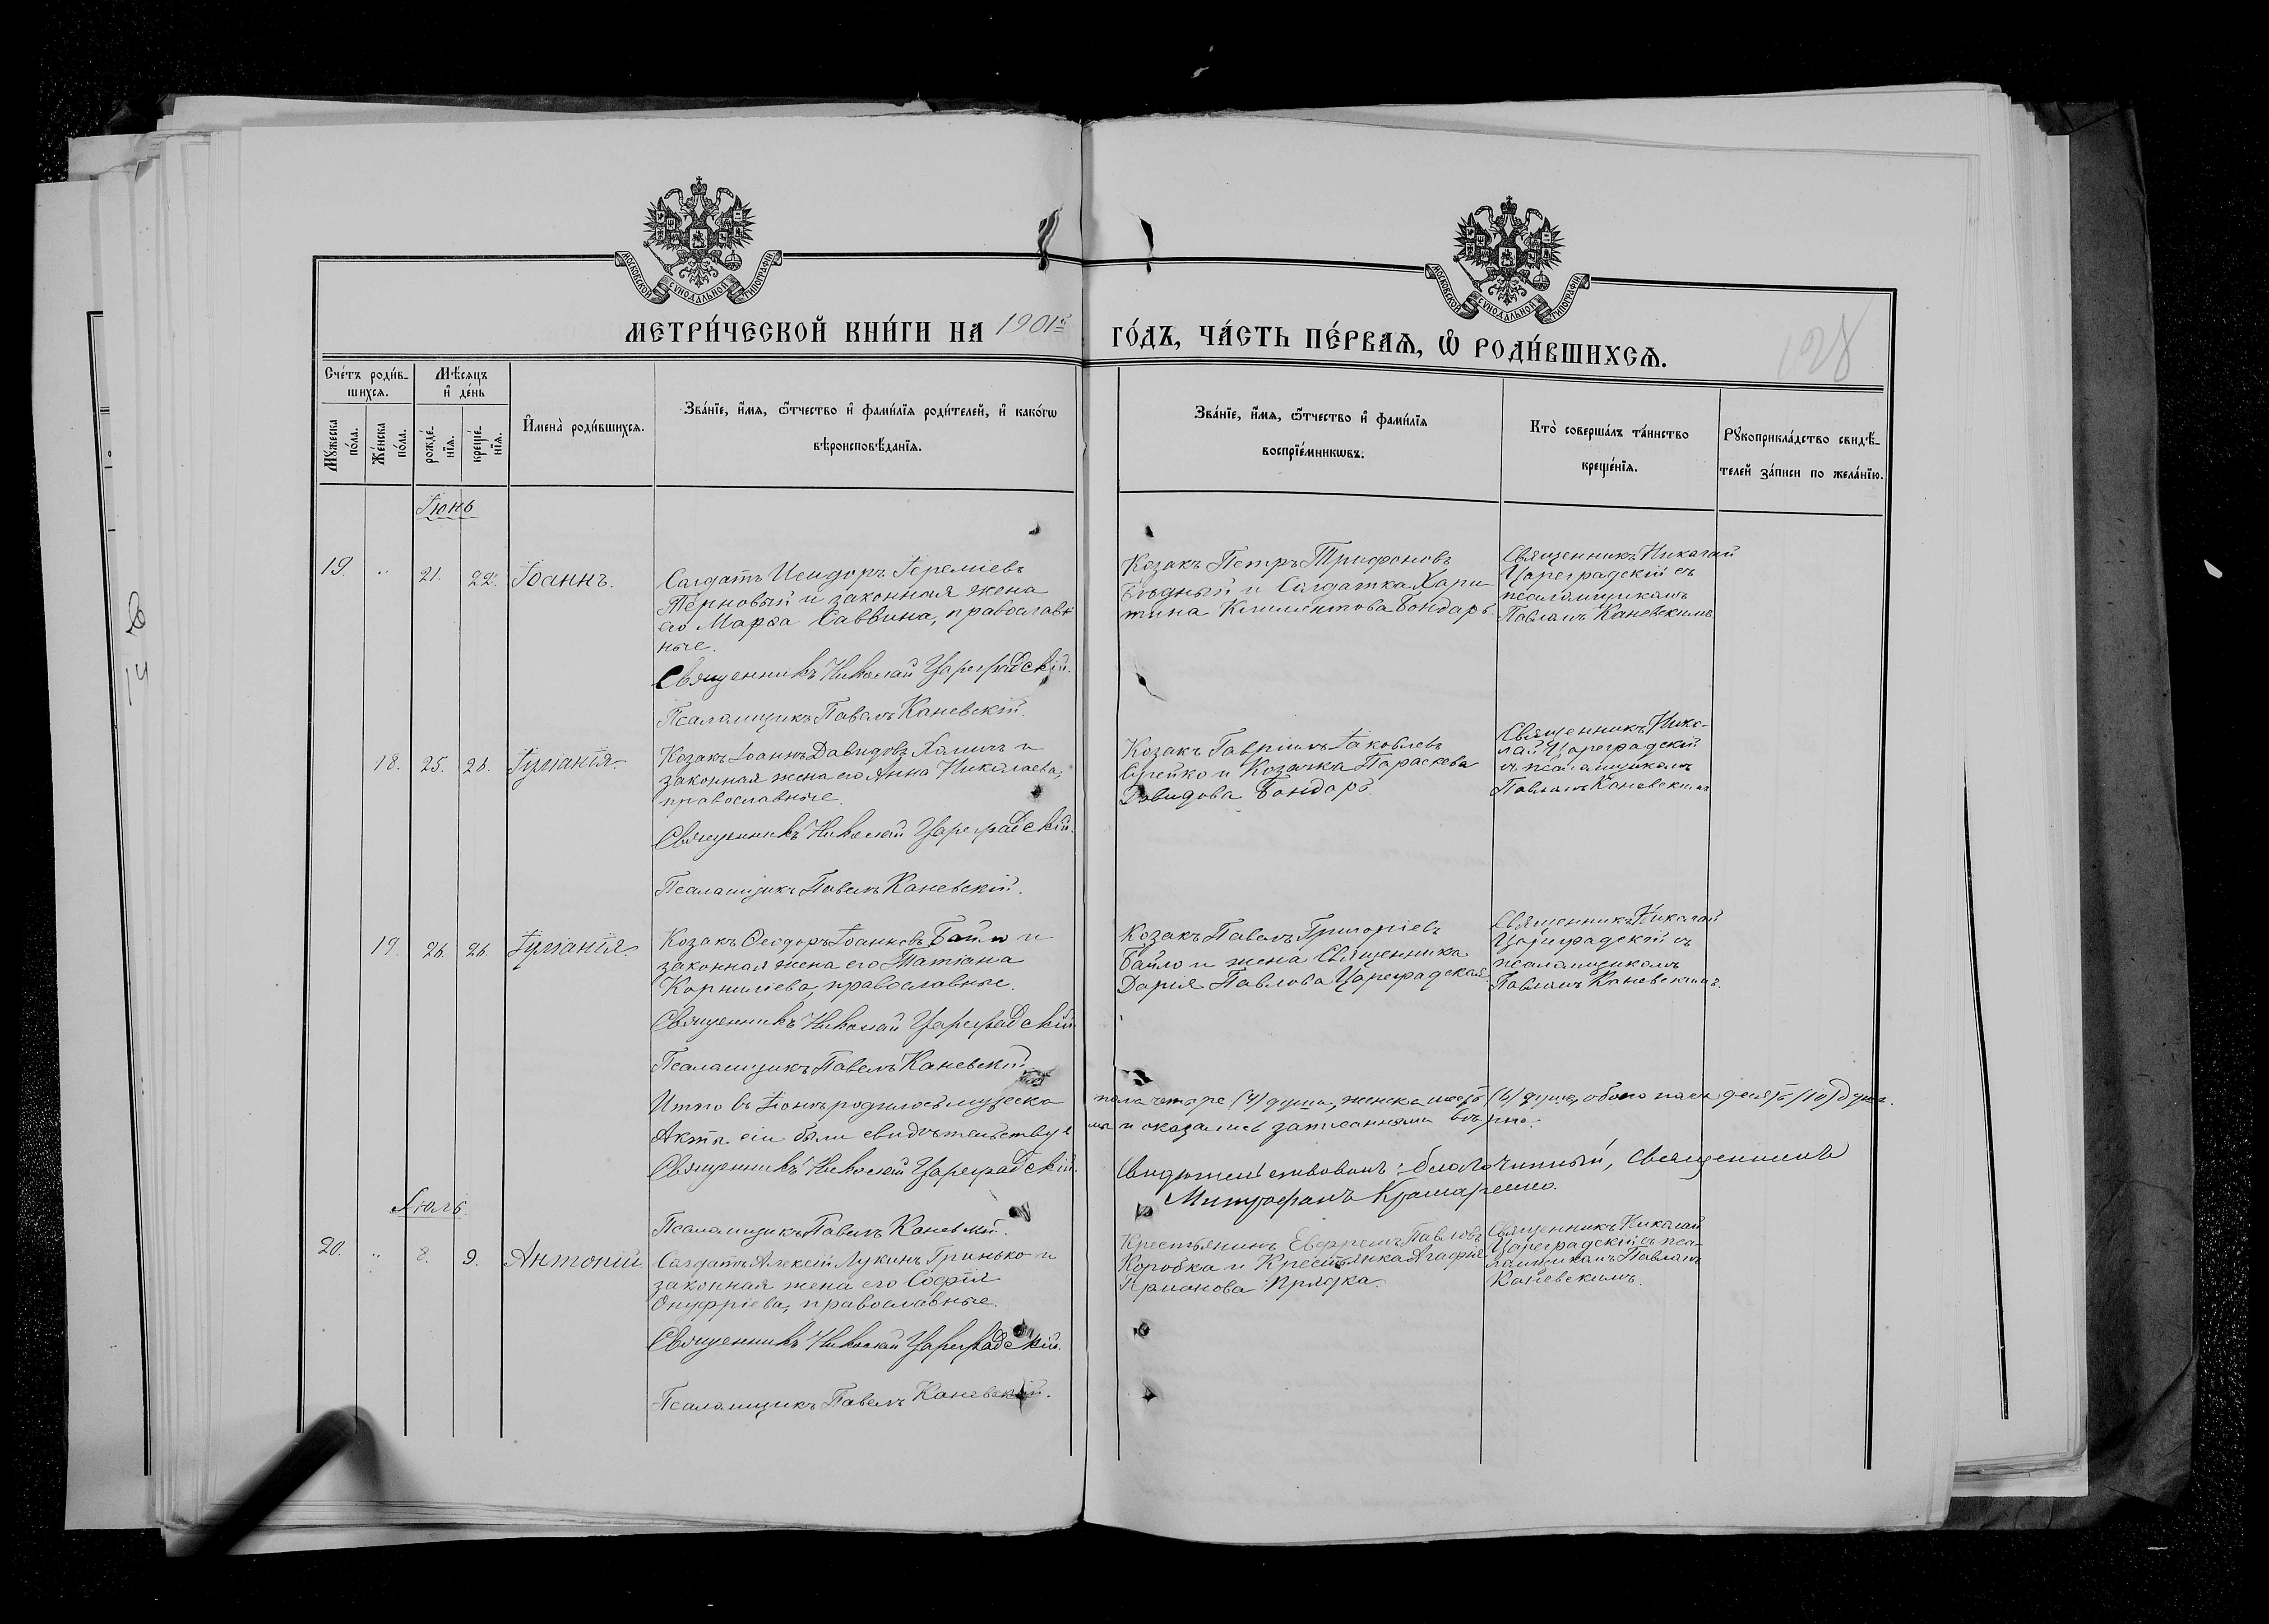 МОСКОВСКОЙ СѴНОДАЛЬНОЙ ТИПОГРАФІИ
МОСКОВСКОЙ СѴНОДАЛЬНОЙ ТИПОГРАФІИ
МЕТРИ́ЧЕСКОЙ КНИ́ГИ НА 1901й ГО́ДЪ, ЧА́СТЬ ПЕ́РВАѦ, Ѡ҆ РОДИ́ВШИХСѦ.
128
Сче́тъ роди́в-
шихсѧ.
Мѣ́сѧцъ
и҆ де́нь
Мꙋ́жеска
по́ла.
Же́нска
по́ла.
рожде́-
нїѧ.
креще́-
нїѧ.
И҆мена̀ роди́вшихсѧ.
Зва́нїе, и҆́мѧ, ѻ҆́тчество и҆ фами́лїѧ роди́телей, и҆ како́гѡ
вѣроисповѣ́данїѧ.
Зва́нїе, и҆́мѧ, ѻ҆́тчество и҆ фами́лїѧ
воспрїе́мникѡвъ.
Кто̀ соверша́лъ та́инство
креще́нїѧ.
Рꙋкоприкла́дство свидѣ́-
телей за́писи по жела́нїю.
Іюнь
19. " 21. 22. Іоаннъ.
Солдатъ Исидоръ Іереміевъ
Терновый и законная жена
его Марѳа Саввина, православ-
ные.
Священникъ Николай Цареградскій.
Псаломщикъ Павелъ Каневскій.
Козакъ Петръ Трифоновъ
Бѣдный и Солдатка Хари-
тина Климентова Бондарь.
Священникъ Николай
Цареградскій съ
псаломщикомъ
Павломъ Каневскимъ.
18. 25. 26. Іуліанія.
Козакъ Іоаннъ Давидовъ и
законная жена его Анна Николаева,
православные.
Священникъ Николай Цареградскій.
Псаломщикъ Павелъ Каневскій.
Козакъ Гавріилъ Іаковлевъ
и Козачка Параскева
Давидова Бондарь.
Священникъ Нико-
лай Цареградскій
съ псаломщикомъ
Павломъ Каневскимъ
19. 26. 26. Іуліанія.
Козакъ Ѳеодоръ Іоанновъ Байло и
законная жена его Татіана
Корниліева, православные.
Священникъ Николай Цареградскій.
Псаломщикъ Павелъ Каневскій
Козакъ Павелъ Григоріевъ
Байло и жена Священника
Дарія Павлова Цареградская.
Священникъ Николай
Цареградскій съ
псаломщикомъ
Павломъ Каневскимъ.
Итто въ Іюнѣ родилось мужеска пола четыре (4) души, женска шесть (6) душъ, обоего пола десять (10) душъ.
Акты сіи были свидѣтельствуемы и оказались записанными вѣрно.
Священникъ Николай Цареградскій.
Псаломщикъ Павелъ Каневскій.
Свидѣтельствовалъ: благочинный, Священникъ
Митрофанъ
Іюль.
20. " 8. 9. Антоній
Солдатъ Алексій Лукинъ Гринько и
законная жена его Софія
Онуфріева, православные.
Священникъ Николай Цареградскій.
Псаломщикъ Павелъ Каневскій.
Крестьянинъ Ефремъ Павловъ
Коробка и Крестьянка Агафія
Прядка.
Священникъ Николай
Цареградскій съ пса-
ломщикомъ Павломъ
Каневскимъ.